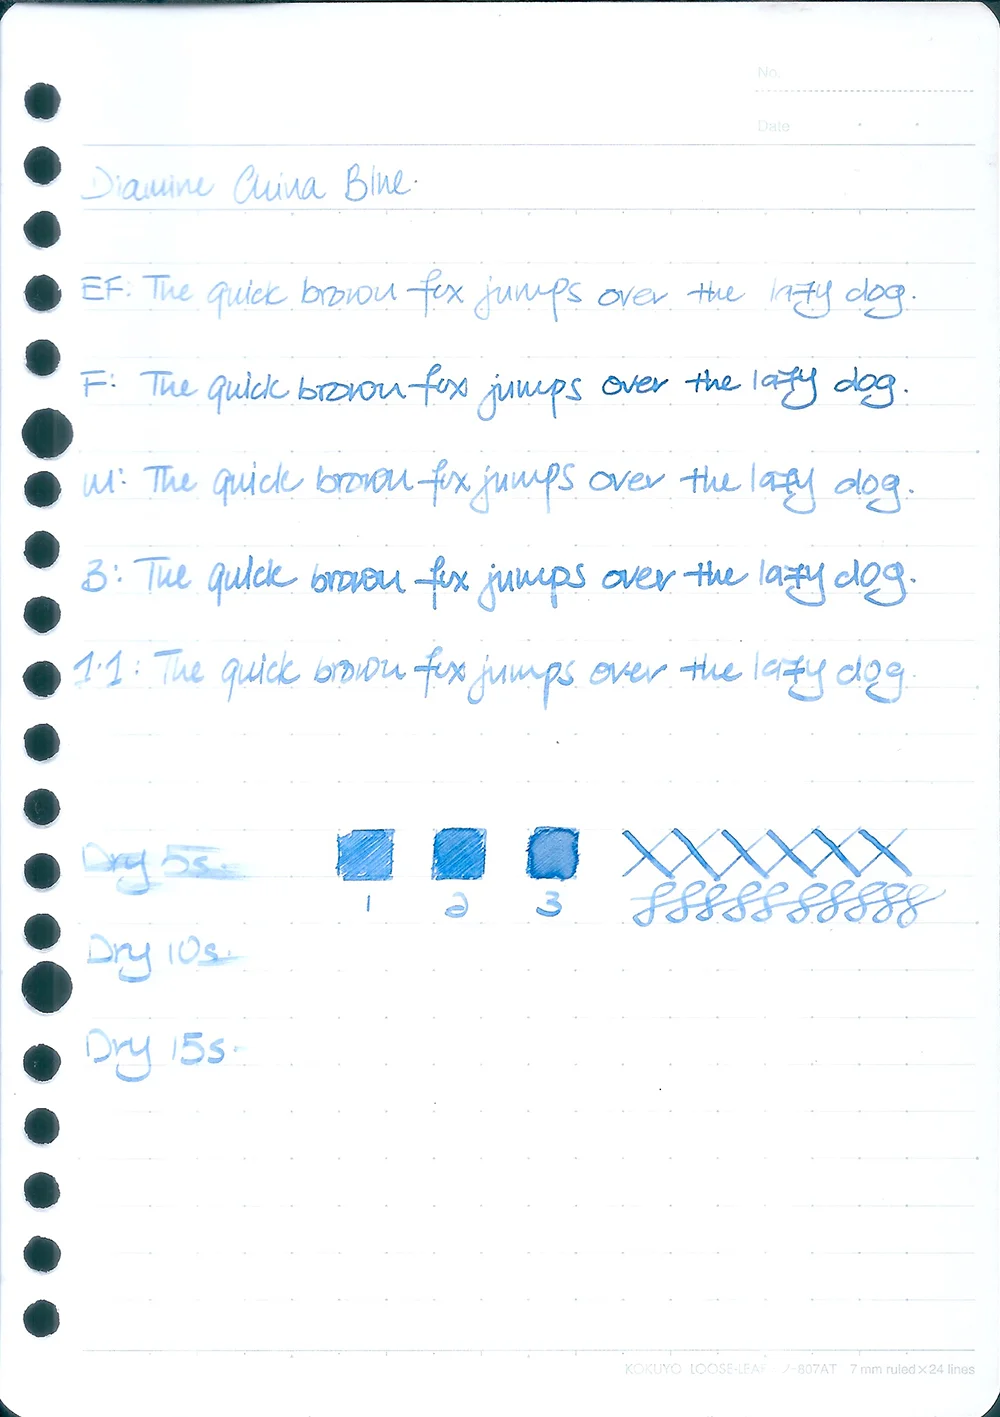 No.
Date
Diamine China Blue.
EF: The quick brown fox jumps over the lazy dog.
F: The quick brown fox jumps over the lazy dog.
M: The quick brown fox jumps over the lazy dog.
B: The quick brown fox jumps over the lazy dog.
1.1: The quick brown fox jumps over the lazy dog
Dry 5s.
1 2 3
Dry 10s.
Dry 15s.
KOKUYO LOOSE-LEAF ノ-807AT 7 mm ruled×24 lines